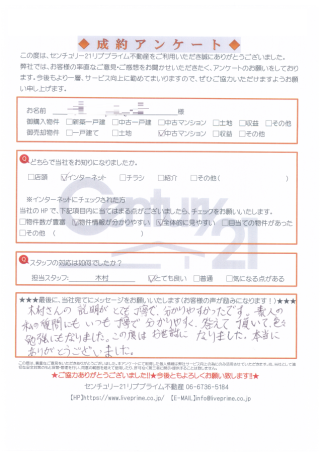 ◆成約アンケート◆
この度は、センチュリー21リブプライム不動産をご利用いただき誠にありがとうございました。
弊社では、お客様の率直なご意見・ご感想をお聞かせいただきたく、アンケートのお願いをしており
ます。今後もより一層、サービス向上に勤めてまいりますので、ぜひご協力いただけますようお願
い申し上げます。
お名前 様
御購入物件 □新築一戸建 □中古一戸建 ☑中古マンション □土地 □収益 □その他
御売却物件 □一戸建て □土地 ☑中古マンション □収益 □その他
Q どちらで当社をお知りになりましたか。
□店頭 ☑インターネット □チラシ □紹介 □その他( )
※インターネットにチェックされた方
当社のHPで、下記項目内に当てはまる点がございましたら、チェックをお願いいたします。
□物件数が豊富 ☑物件情報が分かりやすい ☑全体的に見やすい □担当での物件があった
□その他( )
Century 21
Q スタッフの対応は如何でしたか?
担当スタッフ: 木村 ☑とても良い □普通 □気になる点がある
★★★最後に、当社宛てにメッセージをお願いいたします(お客様の声が励みになります!)★★★
木村さんの説明がとても丁寧で、分かりやすかったです。素人の
私の質問にもいつも丁寧で分かりやすく、答えて頂いて、色々
勉強にもなりました。この度はお世話になりました。本当に
ありがとうございました。
★ご協力ありがとうございました!!★今後ともよろしくお願い致します!!★
センチュリー21リブプライム不動産 06-6736-5184
【HP】https://www.liveprime.co.jp/ 【E-MAIL】info@liveprime.co.jp